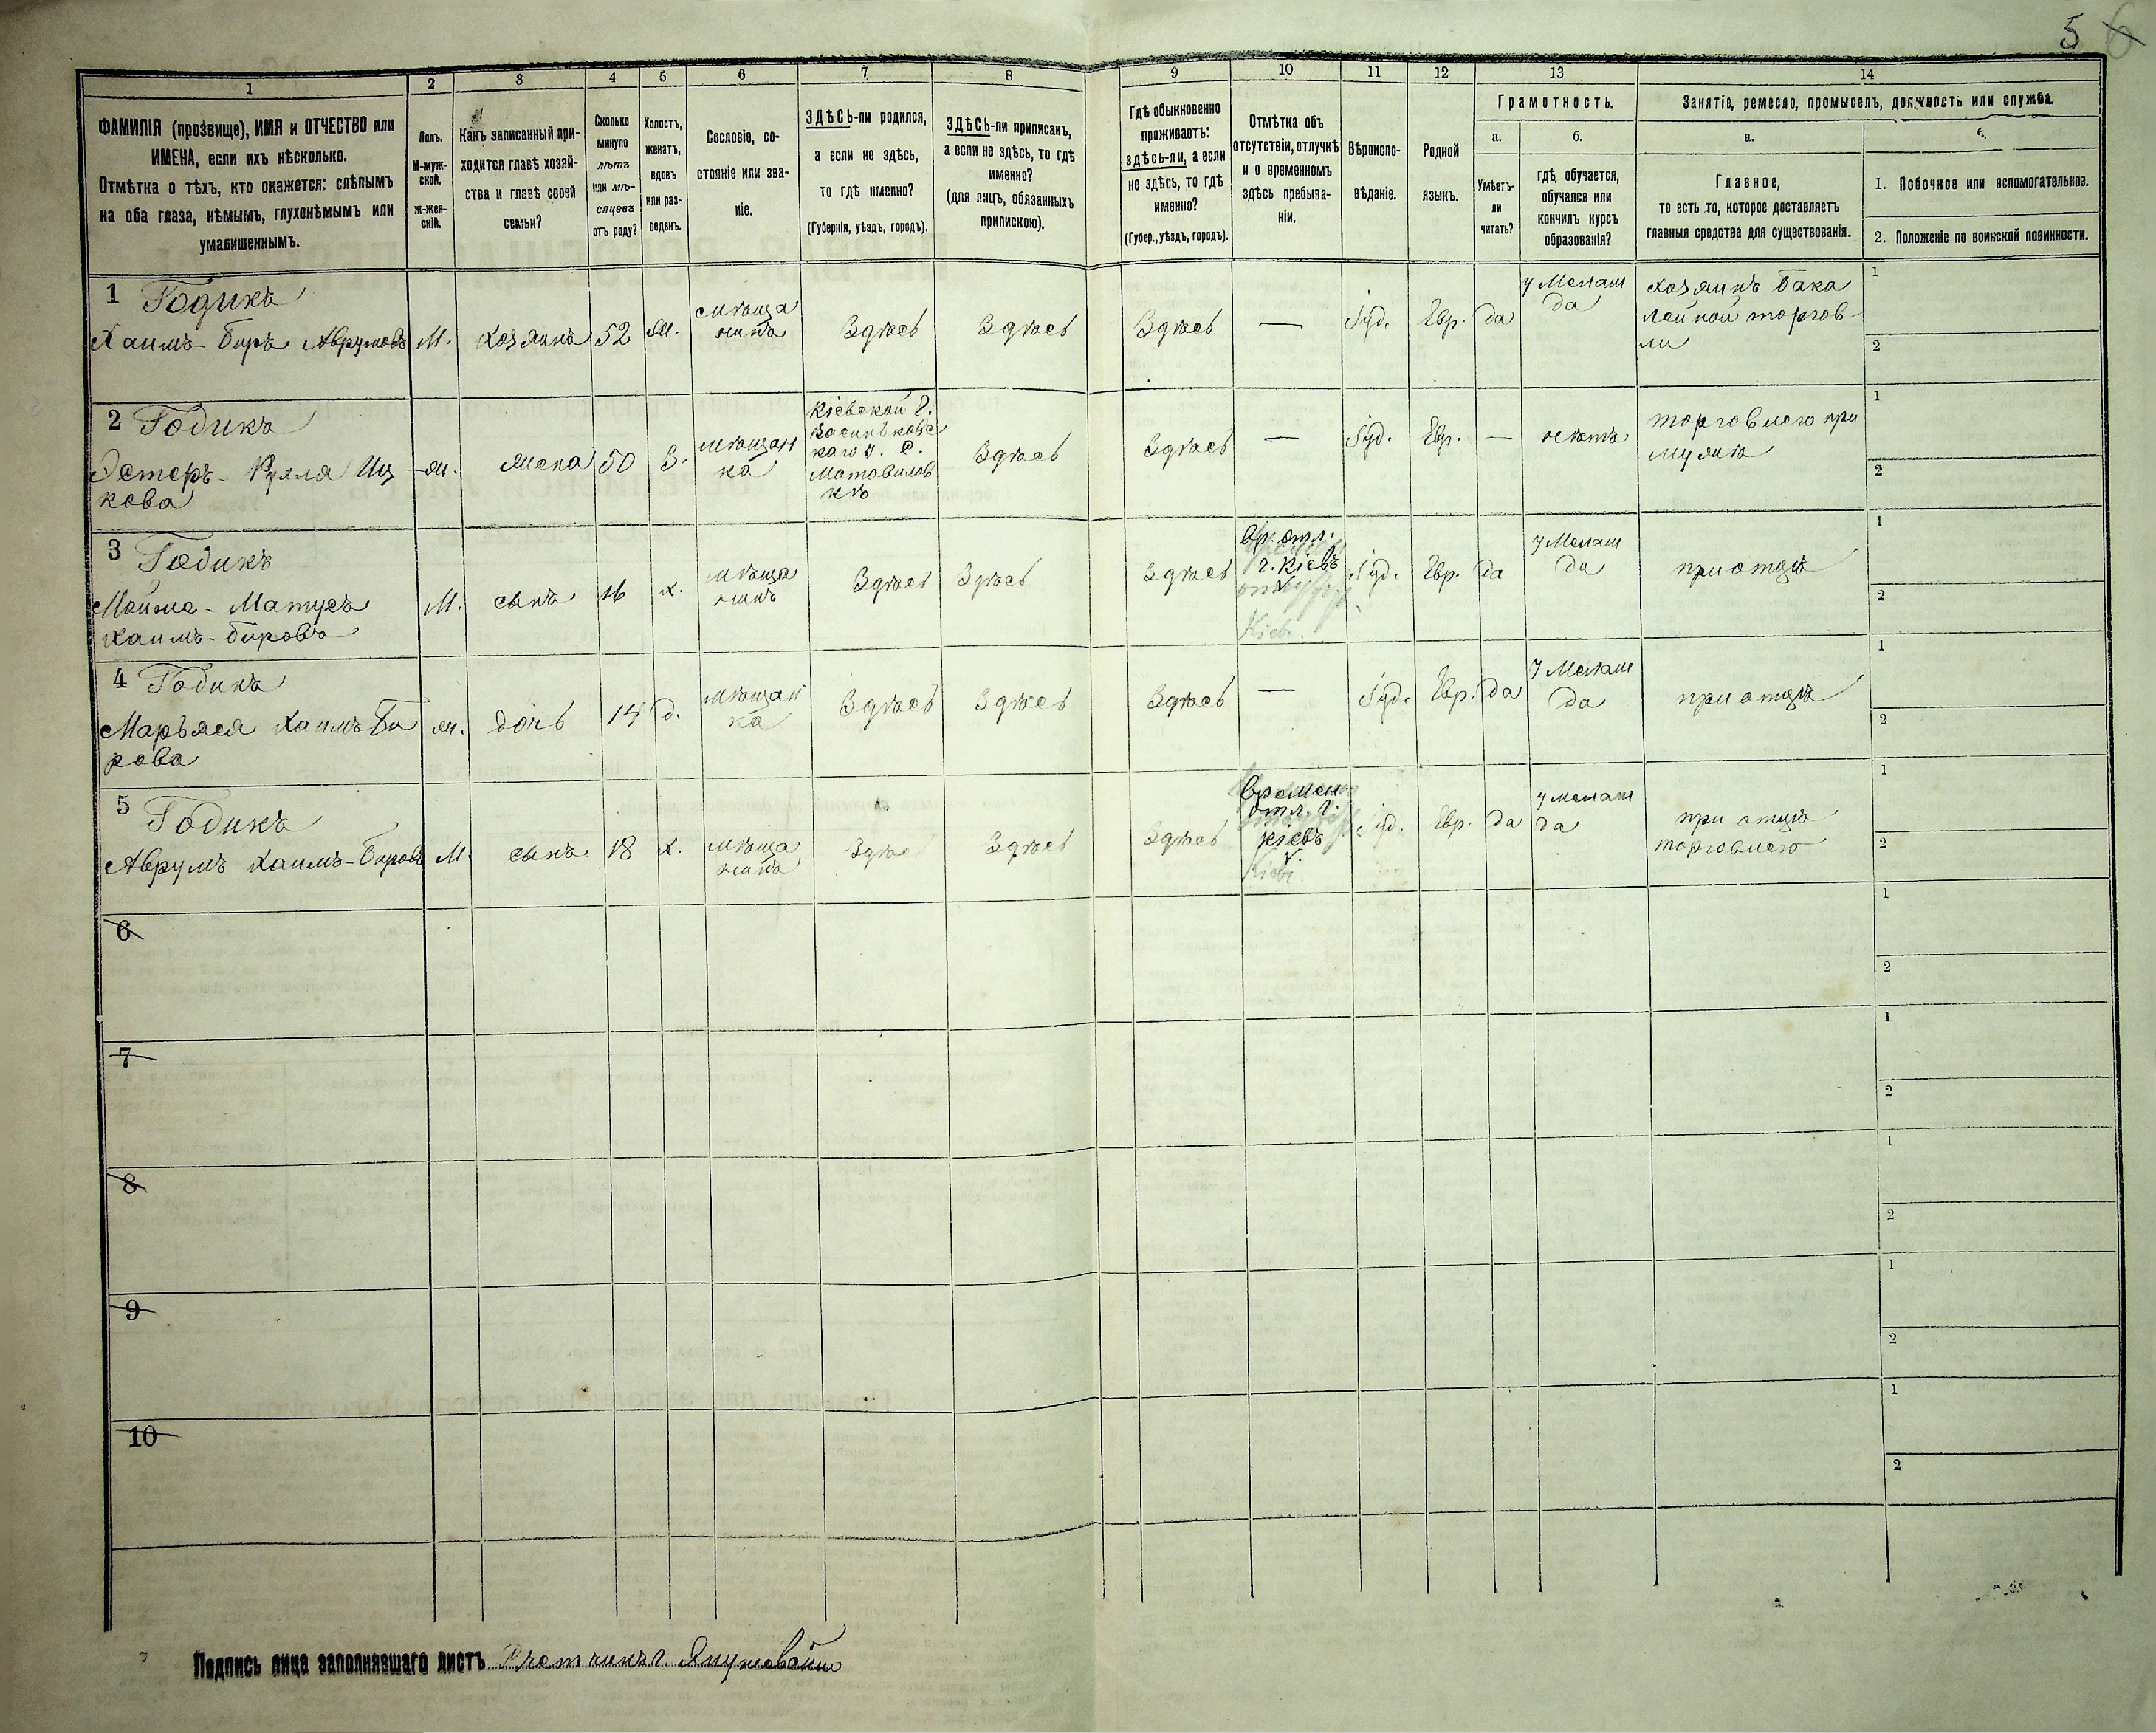 5 6
1
2
3
4
5
6
7
8
9
10
11
12
13
14
ФАМИЛІЯ (прозвище), ИМЯ и ОТЧЕСТВО или
ИМЕНА, если ихъ нѣсколько.
Отмѣтка о тѣхъ, кто окажется: слѣпымъ
на оба глаза, нѣмымъ, глухонѣмымъ или
умалишеннымъ.
Полъ.
М-муж-
ской.
Ж-жен-
скій.
Какъ записанный при-
ходится главѣ хозяй-
ства и главѣ своей
семьи?
Сколько
минуло
лѣтъ
или мѣ-
сяцевъ
отъ роду?
Холостъ,
женатъ,
вдовъ
или раз-
веденъ.
Сословіе, со-
стояніе или зва-
ніе.
ЗДѢСЬ-ли родился,
а если не здѣсь,
то гдѣ именно?
(Губернія, уѣздъ, городъ).
ЗДѢСЬ-ли приписанъ,
а если не здѣсь, то гдѣ
именно?
(для лицъ, обязанныхъ
припискою).
Гдѣ обыкновенно
проживаетъ:
здѣсь-ли, а если
не здѣсь, то гдѣ
именно?
(Губер., уѣздъ, городъ).
Отмѣтка объ
отсутствіи, отлучкѣ
и о временномъ
здѣсь пребыва-
ніи.
Вѣроиспо-
вѣданіе.
Родной
языкъ.
Грамотность.
а.
Умѣетъ-
ли
читать?
б.
гдѣ обучается,
обучался или
кончилъ курсъ
образованія?
Занятіе, ремесло, промыселъ, должность или служба.
а.
Главное,
то есть то, которое доставляетъ
главныя средства для существованія.
б.
1. Побочное или вспомогательное.
2. Положеніе по воинской повинности.
1 Годикъ
Хаимъ-Биръ Аврумовъ
М.
хозяинъ
52
ж.
мѣща
нинъ
Здѣсь
Здѣсь
Здѣсь
—
Іуд.
Евр.
да
у Мелам
да
хозяинъ бака
лейной торгов-
ли
1
2
2 Годикъ
Эстеръ-Рухля Иц
кова
ж.
жена
50
З.
мѣщан
ка
Кіевской г.
Васильковс
каго у. с.
Мотовилов
кѣ
Здѣсь
Здѣсь
—
Іуд.
Евр.
—
нѣтъ
торговлею при
мужѣ
1
2
3 Годикъ
Мойше-Матусъ
Хаимъ-Бировъ
М.
сынъ
16
х.
мѣща
нинъ
Здѣсь
Здѣсь
Здѣсь
вр. отл.
г. Кіевъ
Кіевъ.
Іуд.
Евр.
да
у Мелам
да
при отцѣ
1
2
4 Годикъ
Марьяся Хаимъ Би
рова
ж.
дочь
14
д.
мѣщан
ка
Здѣсь
Здѣсь
Здѣсь
—
Іуд.
Евр.
да
у Мелам
да
при отцѣ
1
2
5 Годикъ
Аврумъ Хаимъ-Бировъ
М.
сынъ
18
х.
мѣща
нинъ
Здѣсь
Здѣсь
Здѣсь
времен.
отл. г.
Кіевъ
Кіевъ
Іуд.
Евр.
да
у мелам
да
при отцѣ
торговлею
1
2
6
1
2
7
1
2
8
1
2
9
1
2
10
1
2
Подпись лица заполнявшаго листъ